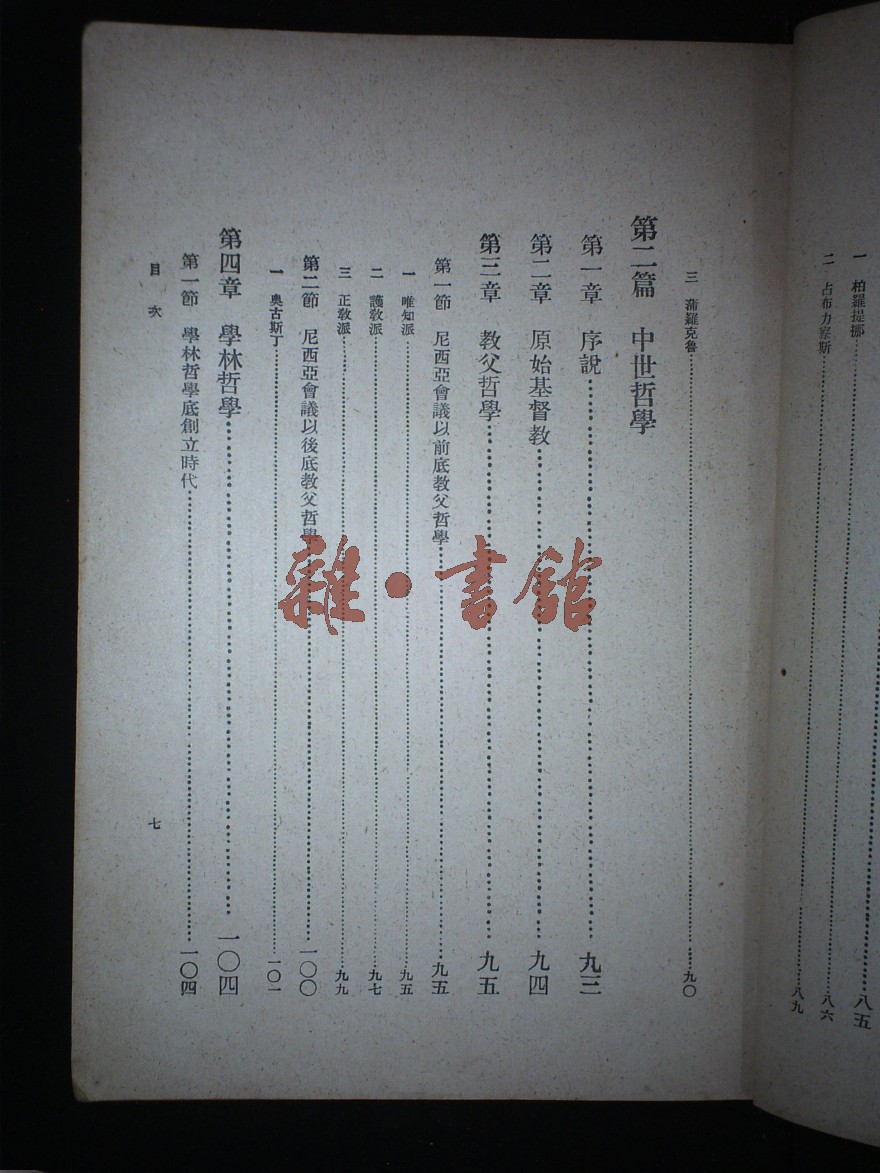 八五
一 柏羅提挪……八六
二 占布力察斯……八九
三 蒲羅克魯……九〇
第二篇 中世哲學
第一章 序說……九三
第二章 原始基督教……九四
第三章 教父哲學……九五
第一節 尼西亞會議以前底教父哲學……九五
一 唯知派……九五
二 護教派……九七
三 正教派……九九
第二節 尼西亞會議以後底教父哲學……一〇〇
一 奧古斯丁……一〇一
第四章 學林哲學……一〇四
第一節 學林哲學底創立時代……一〇四
目次 七
雜·書館